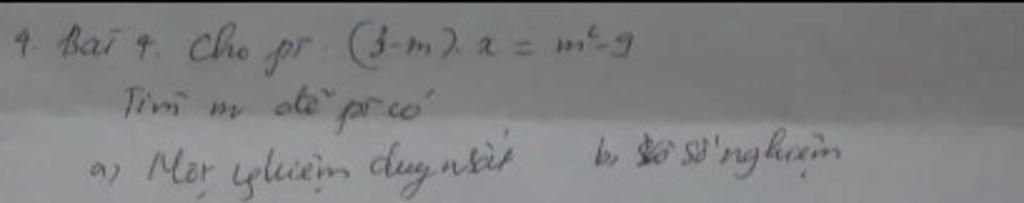 4. Bài 4. Cho pt (3-m).x = m²-9
Tìm m để pt có
a) Một nghiệm duy nhất b, số nghiệm